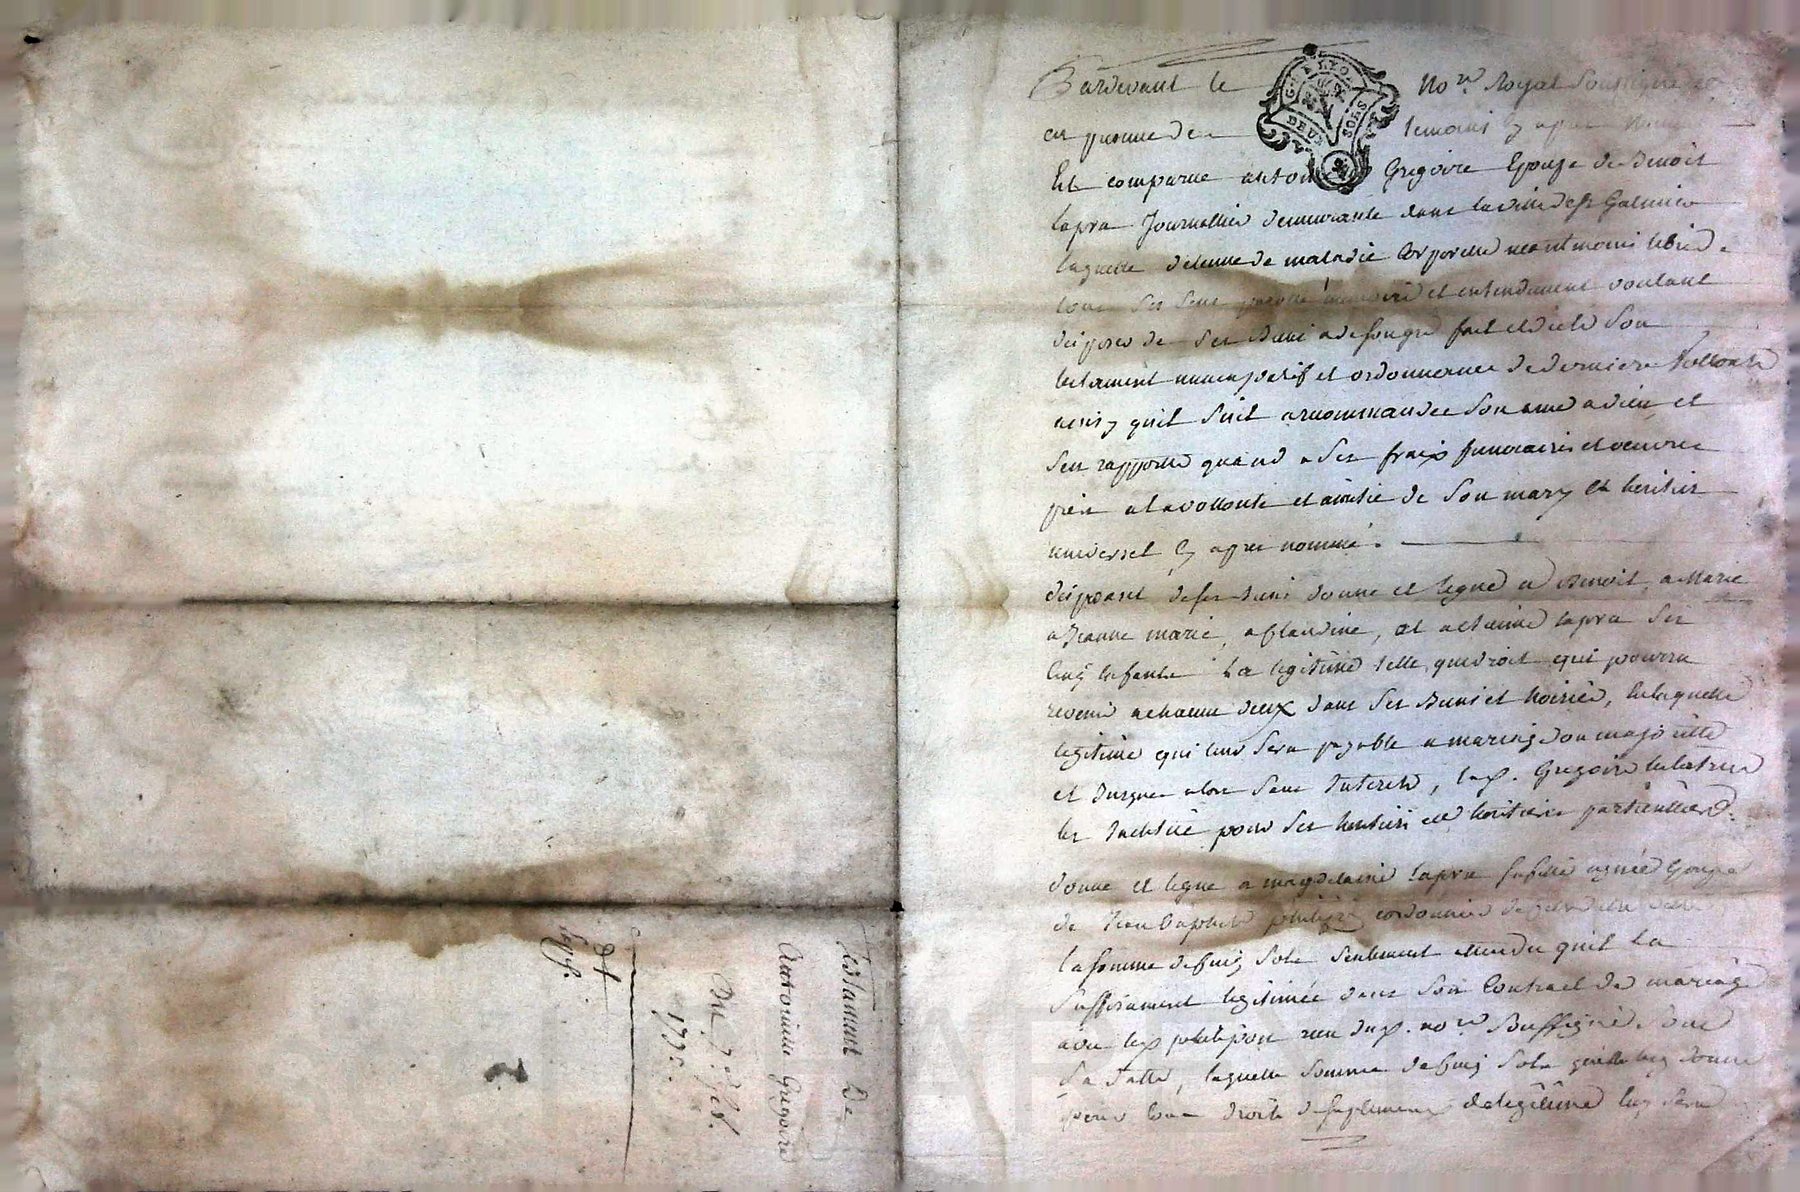 Testament De
Antoinette Gregoire
Du 7. 
1775.
Pardevant le No.re Royal soussigné et
en presence des temoins cy apres nommés
Est comparue antoi Gregoire Epouse de Benoit
lapra Journallier demeurante dans la ville de st Galmier
laquelle detenue de maladie Corporelle neantmoins libre de
tous ses sens parolle memoire et entendement voulant
disposer de ses Biens a de son gré fait et dicté son
testament nuncupatif et ordonnance de derniere vollonté
ainsy quil suit a recommandée son ame a dieu et
sen rapporte quand a ses fraix funeraires et oeuvres
pies a la vollonté et amitié de son mary et heritier
universel cy apres nommé.
disposant de ses biens donne et legue a Benoit, a Marie
a Jeanne marie, a Claudine, et a Etienne lapra ses
Cinq Enfants La legitime telle que droit qui pourra
revenir a chacun deux dans ses Biens et hoirie, la laquelle
legitime qui leur sera payable a mariage ou majorité
et jusques alors sans Interets, lad. Gregoire testatrice
les Institue pour ses heritiers et heritieres particulieres.
donne et legue a magdelaine lapra sa fille agnée Epouse
de Jean Baptiste cordonnier de
la somme de Cinq sols seulement attendu quil la
suffisament legitimée dans son Contract de mariage
avec led. recu dud. no.re soussigné, sous
sa datte, laquelle somme de Cinq sols quelle luy donne
pour tous droits de suplement de legitime luy sera